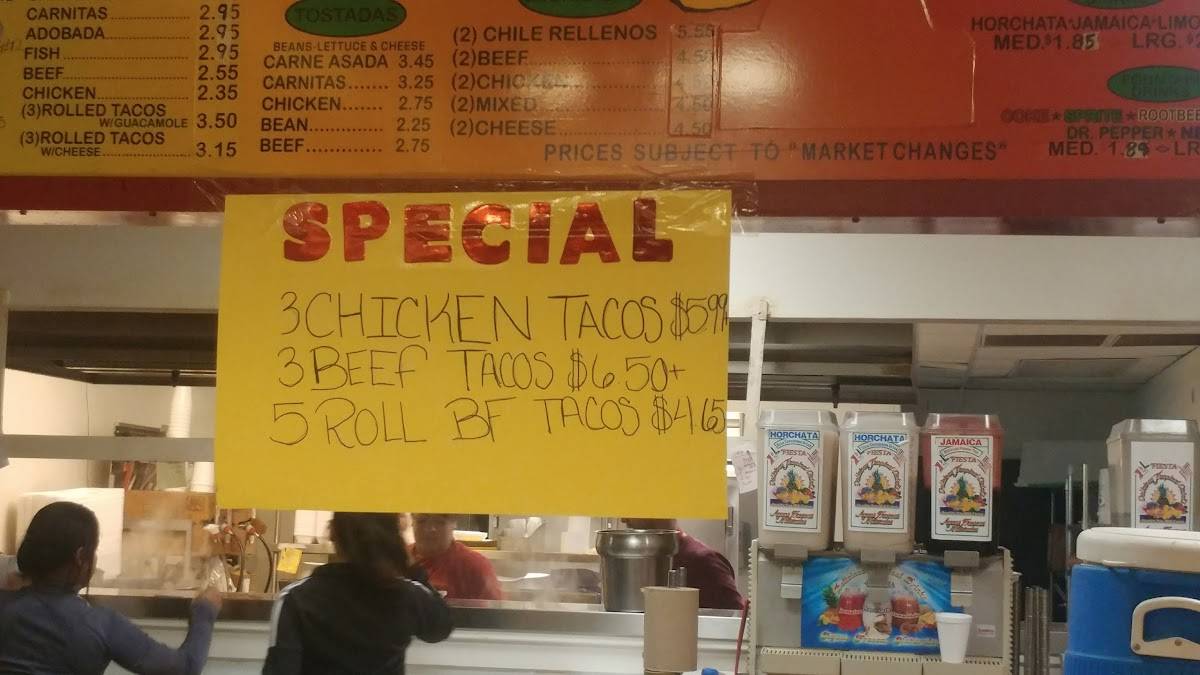 CARNITAS 2.95
ADOBADA 2.95
FISH 2.95
BEEF 2.55
CHICKEN 2.35
(3)ROLLED TACOS
W/GUACAMOLE 3.50
(3)ROLLED TACOS
W/CHEESE 3.15
TOSTADAS
BEANS-LETTUCE & CHEESE
CARNE ASADA 3.45
CARNITAS 3.25
CHICKEN 2.75
BEAN 2.25
BEEF 2.75
(2) CHILE RELLENOS 5.55
(2)BEEF 4.50
(2)CHICKEN
(2)MIXED 4.50
(2)CHEESE 4.50
PRICES SUBJECT TO "MARKET CHANGES"
HORCHATA JAMAICA LIMO
MED. $1.85 LRG. $2
COKE ★ SPRITE ★ ROOTBEE
DR. PEPPER ★ NE
MED. 1.89 LR
SPECIAL
3 CHICKEN TACOS $5.99
3 BEEF TACOS $6.50+
5 ROLL BF TACOS $4.65
HORCHATA
FIESTA
HORCHATA
FIESTA
JAMAICA
FIESTA
FIESTA